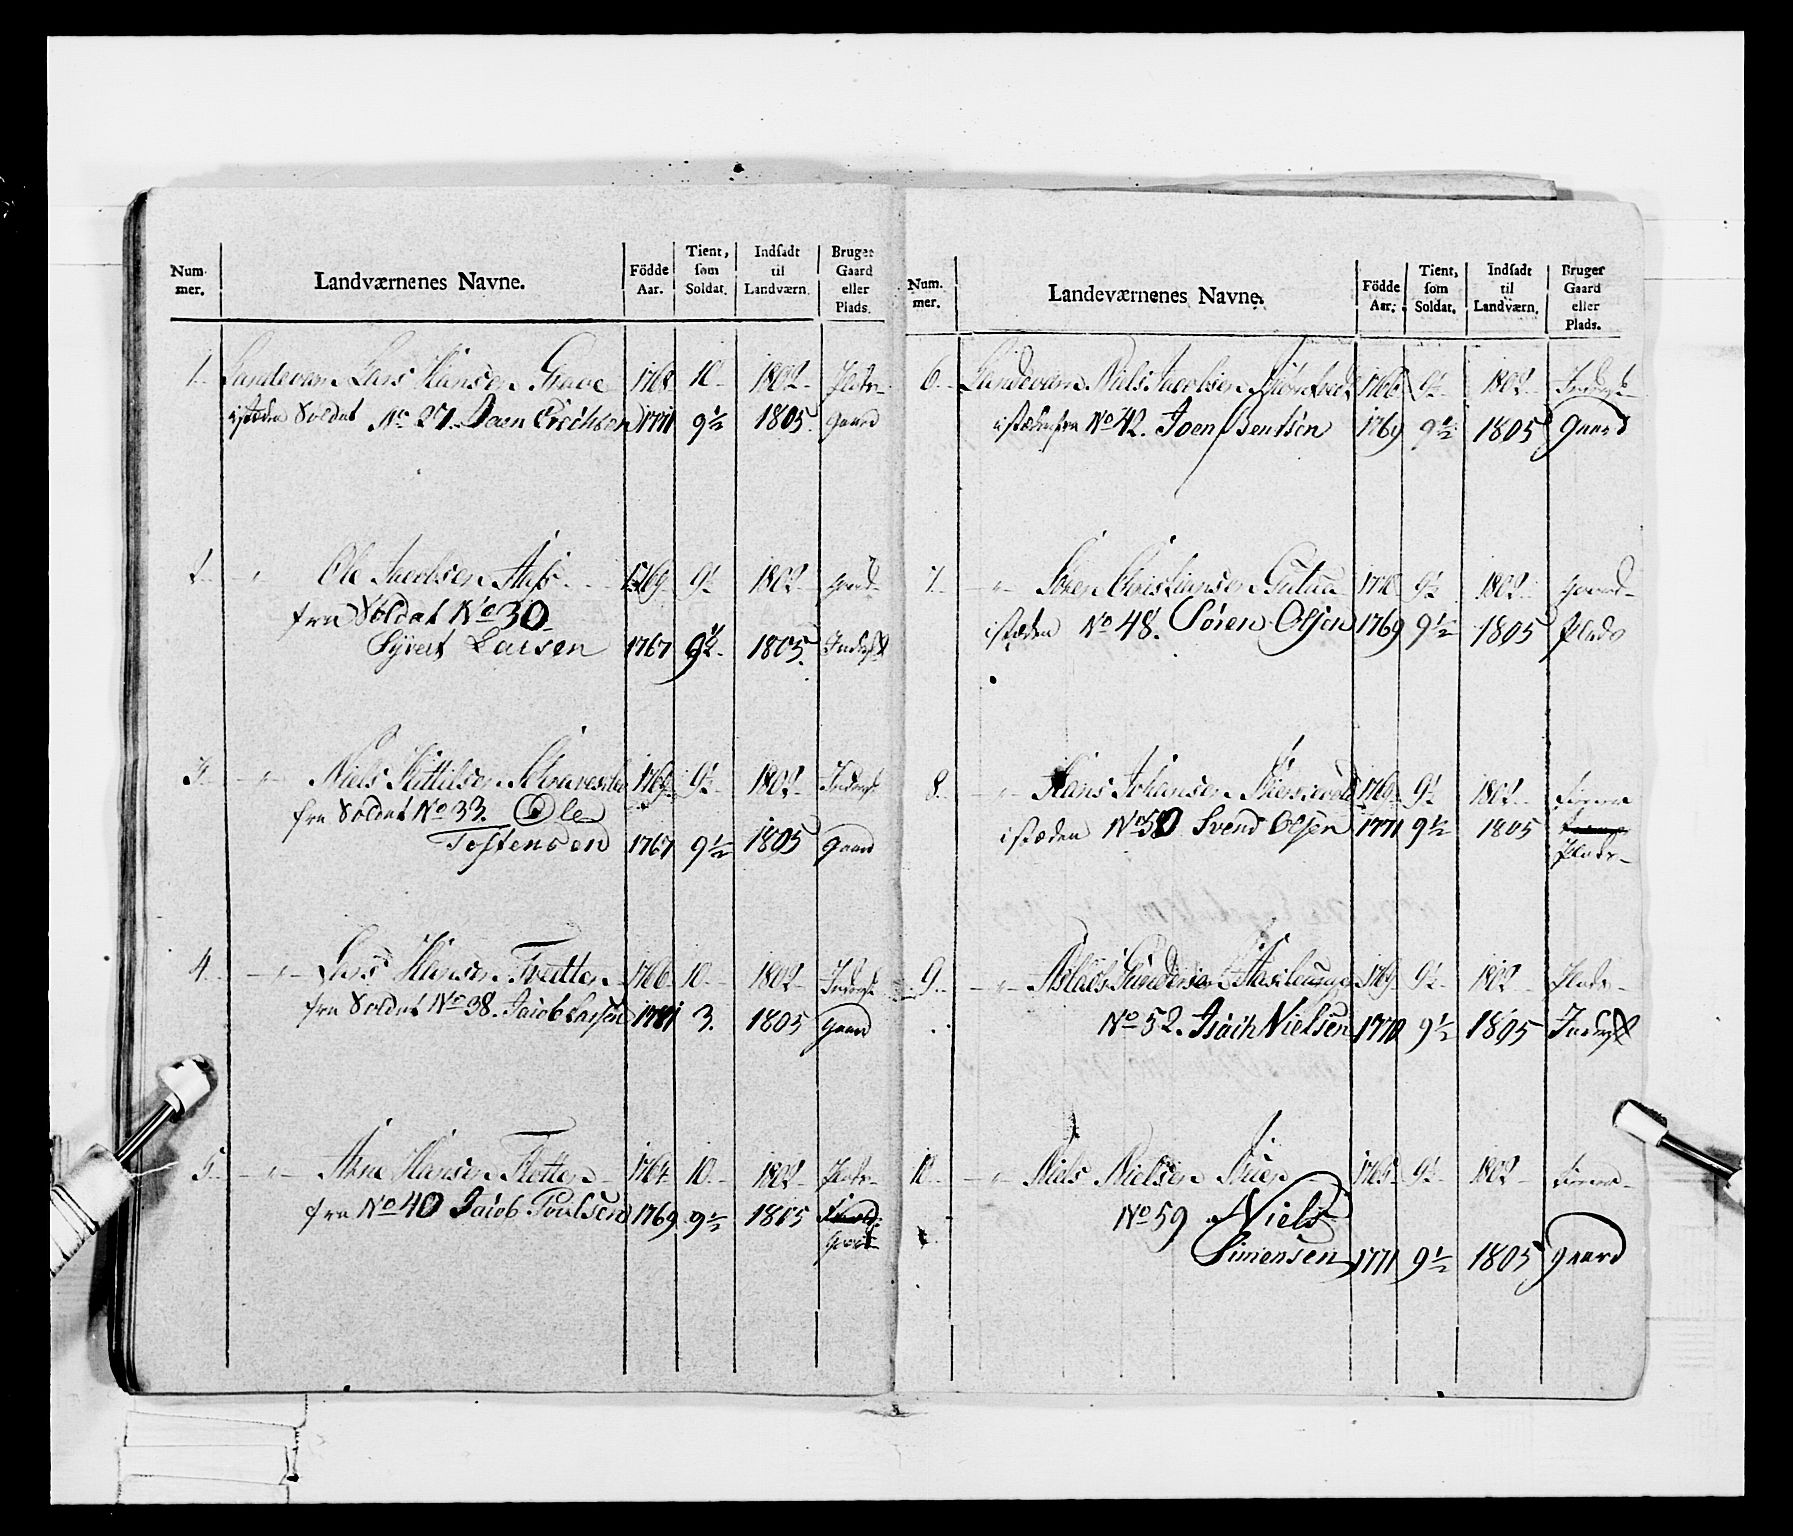 Num-
mer.
Landværnenes Navne.
Födde
Aar.
Tient,
som
Soldat.
Indsadt
til
Landværn.
Bruger
Gaard
eller
Plads.
1. Landeværn Lars Hansen 1768 10 1802 Plads
istæden Soldat No 27. Erichsen 1771 9½ 1805. gaard
2. " Ole Jacobsen 1769 9½ 1802 gaard
fra Soldat No 30
Syvert Larsen 1767 9½ 1805. Inderst
3. " Niels Kittilsen 1769 9½ 1802 Inderst
fra Soldat No 33. Ole
Tostensen 1767 9½ 1805 gaard
4. " Lars Hansen Tvetten 1766 10 1802 Inderst
fra Soldat No 38. Jacob Larsen 1781 3. 1805 gaard
5. " Hansen 1764 10 1802 Plads
fra No 40 Jacob Poulsen 1769 9½ 1805
gaard
Num.
mer.
Landeværnenes Navne.
Födde
Aar.
Tient,
som
Soldat.
Indsadt
til
Landværn.
Bruger
Gaard
eller
Plads.
6. Landeværn Niels Jacobsen 1766 9½ 1802 Inderst
istæden fra No 42. Joen Bentsen 1769 9½ 1805 gaard
7. " Søren Christiansen 9½ 1802 gaard
istæden No 48. Sören Olsen 1769 9½ 1805 plads
8. " Hans Johansen 1769 9½ 1802
istæden No 50 Svend Olsen 1771 9½ 1805
plads
9. " 1769 9½ 1802 Plads
No 52. Nielsen 1770 9½ 1805 Inderst
10. " Niels Nielsen 1765 9½ 1802
No 59 Niels
Simensen 1771 9½ 1805 gaard